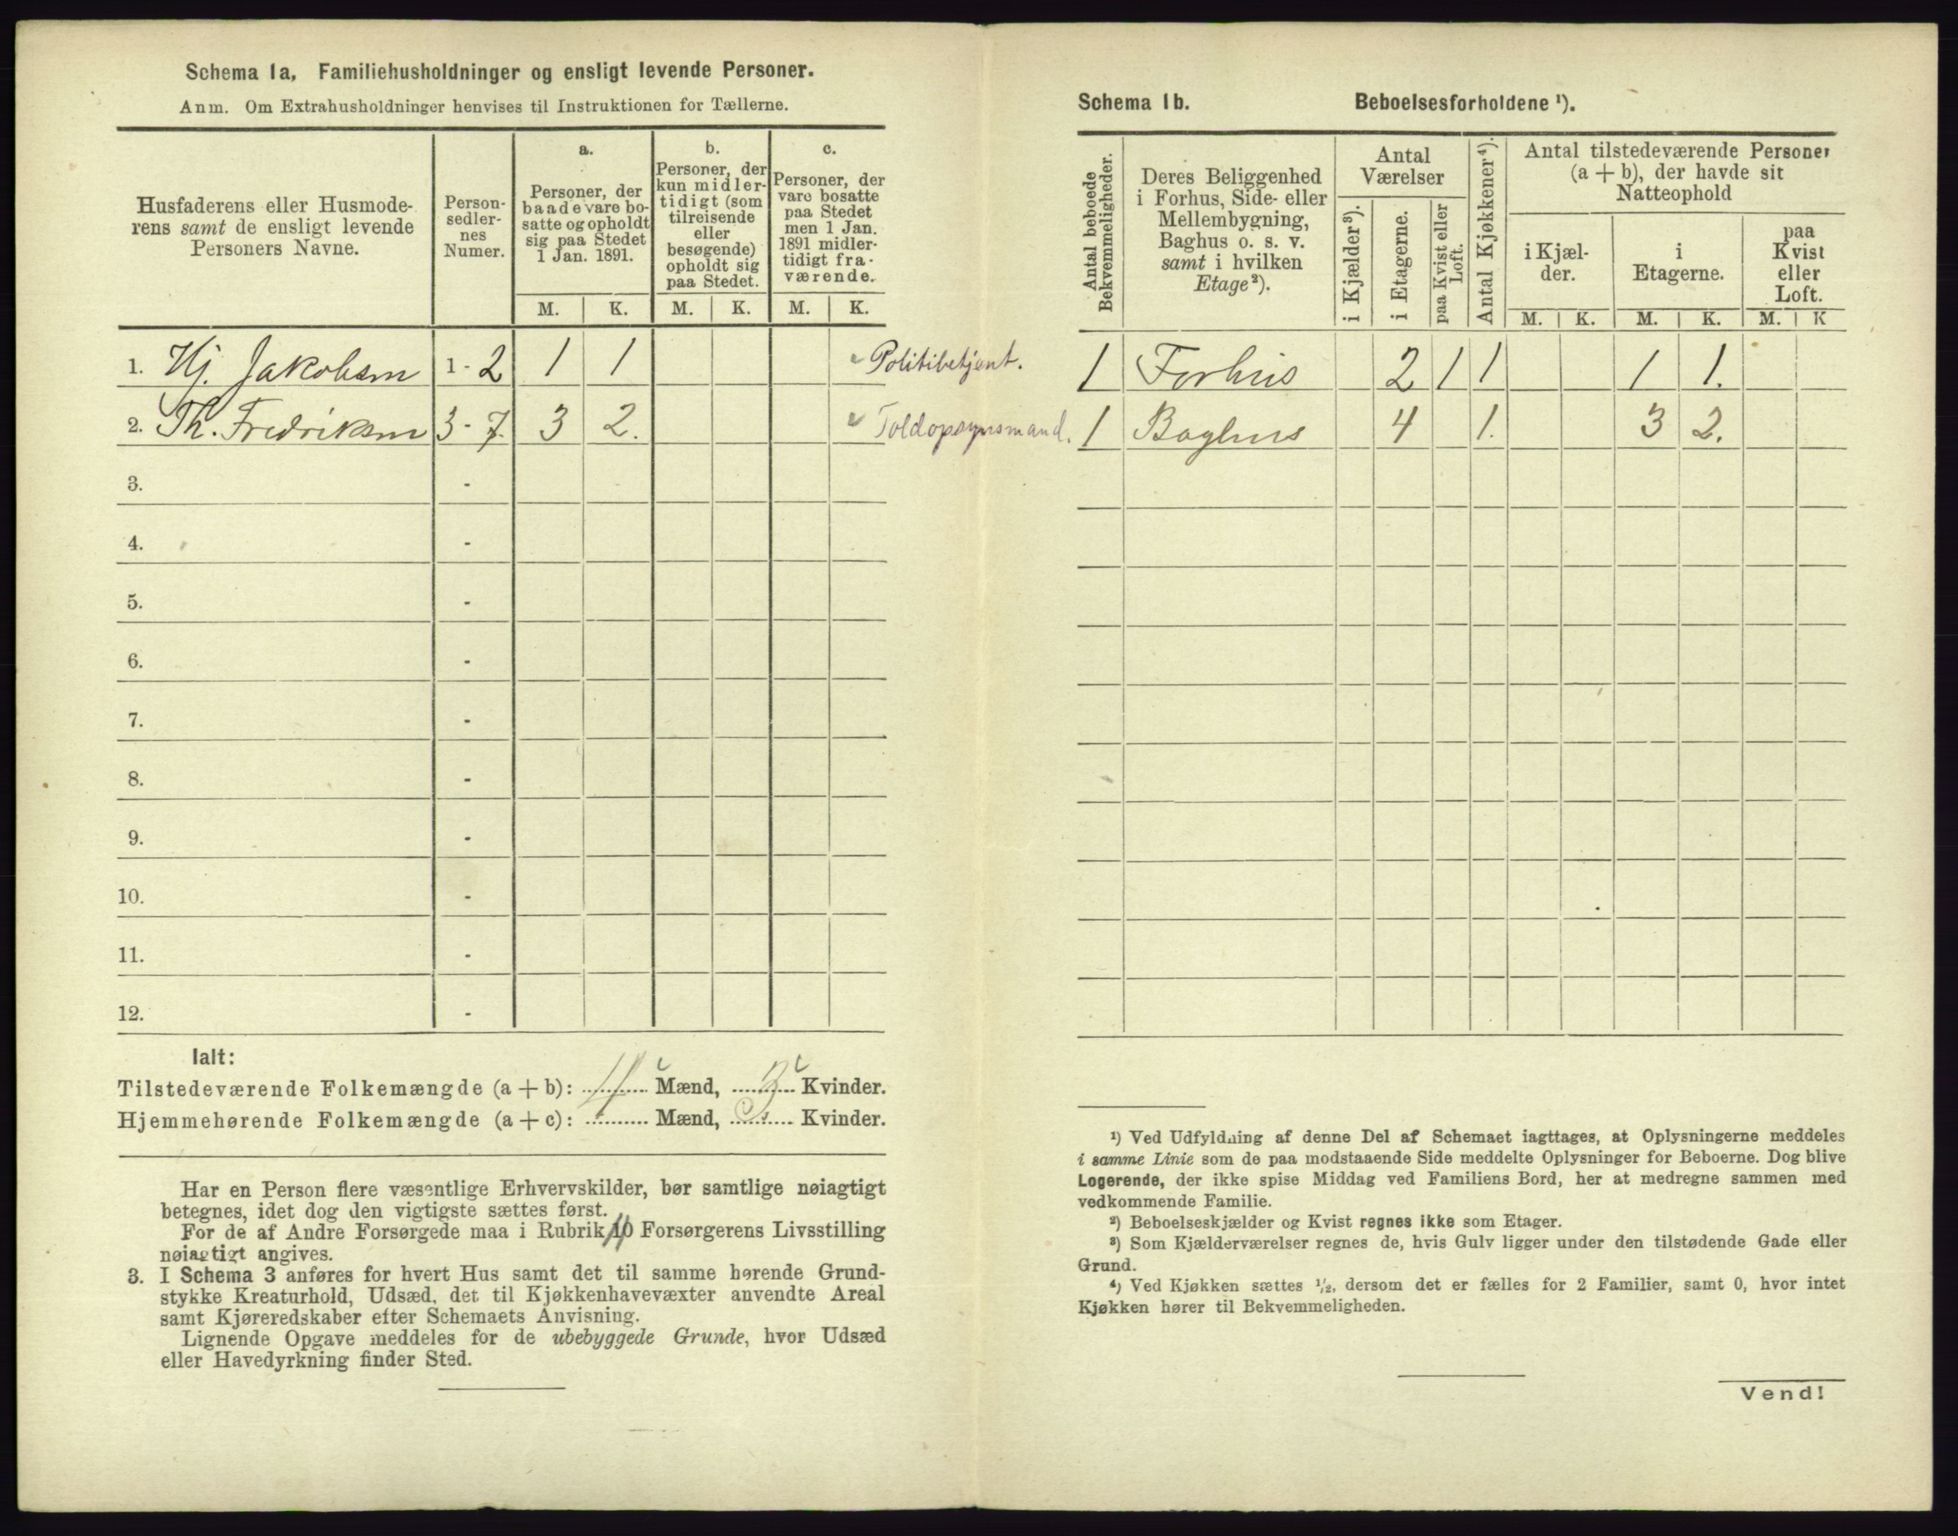 Schema 1a, Familiehusholdninger og ensligt levende Personer.
Anm. Om Extrahusholdninger henvises til Instruktionen for Tællerne.
Husfaderens eller Husmode-
rens samt de ensligt levende
Personers Navne.
Person-
sedler-
nes
Numer.
a.
Personer, der
baade vare bo-
satte og opholdt
sig paa Stedet
1 Jan. 1891.
b.
Personer, der
kun midler-
tidigt (som
tilreisende
eller
besøgende)
opholdt sig
paa Stedet.
c.
Personer, der
vare bosatte
paa Stedet
men 1 Jan.
1891 midler-
tidigt fra-
værende.
M. K. M. K. M. K.
1. Hj. Jakobsen 1 - 2 1 1 Politibetjent.
2. Th. Fredriksen 3 - 7. 3 2. Toldopsynsmand.
3. -
4. -
5. -
6. -
7. -
8. -
9. -
10. -
11. -
12. -
Ialt:
Tilstedeværende Folkemængde (a + b): 4 Mænd, 3 Kvinder.
Hjemmehørende Folkemængde (a + c): Mænd, Kvinder.
Har en Person flere væsentlige Erhvervskilder, bør samtlige nøiagtigt
betegnes, idet dog den vigtigste sættes først.
For de af Andre Forsørgede maa i Rubrik 10 Forsørgerens Livsstilling
nøiagtigt angives.
3. I Schema 3 anføres for hvert Hus samt det til samme hørende Grund-
stykke Kreaturhold, Udsæd, det til Kjøkkenhavevæxter anvendte Areal
samt Kjøreredskaber efter Schemaets Anvisning.
Lignende Opgave meddeles for de ubebyggede Grunde, hvor Udsæd
eller Havedyrkning finder Sted.
Schema 1b. Beboelsesforholdene ¹).
Antal beboede
Bekvemmeligheder.
Deres Beliggenhed
i Forhus, Side- eller
Mellembygning,
Baghus o. s. v.
samt i hvilken
Etage²).
Antal
Værelser
i Kjælder³).
i Etagerne.
paa Kvist eller
Loft.
Antal Kjøkkener⁴).
Antal tilstedeværende Personer
(a + b), der havde sit
Natteophold
i Kjæl-
der.
i
Etagerne.
paa
Kvist
eller
Loft.
M. K. M. K. M. K
1 Forhus 2 1 1 1 1.
1 Baghus 4 1. 3 2.
¹) Ved Udfyldning af denne Del af Schemaet iagttages, at Oplysningerne meddeles
i samme Linie som de paa modstaaende Side meddelte Oplysninger for Beboerne. Dog blive
Logerende, der ikke spise Middag ved Familiens Bord, her at medregne sammen med
vedkommende Familie.
²) Beboelseskjælder og Kvist regnes ikke som Etager.
³) Som Kjælderværelser regnes de, hvis Gulv ligger under den tilstødende Gade eller
Grund.
⁴) Ved Kjøkken sættes ½, dersom det er fælles for 2 Familier, samt 0, hvor intet
Kjøkken hører til Bekvemmeligheden.
Vend!